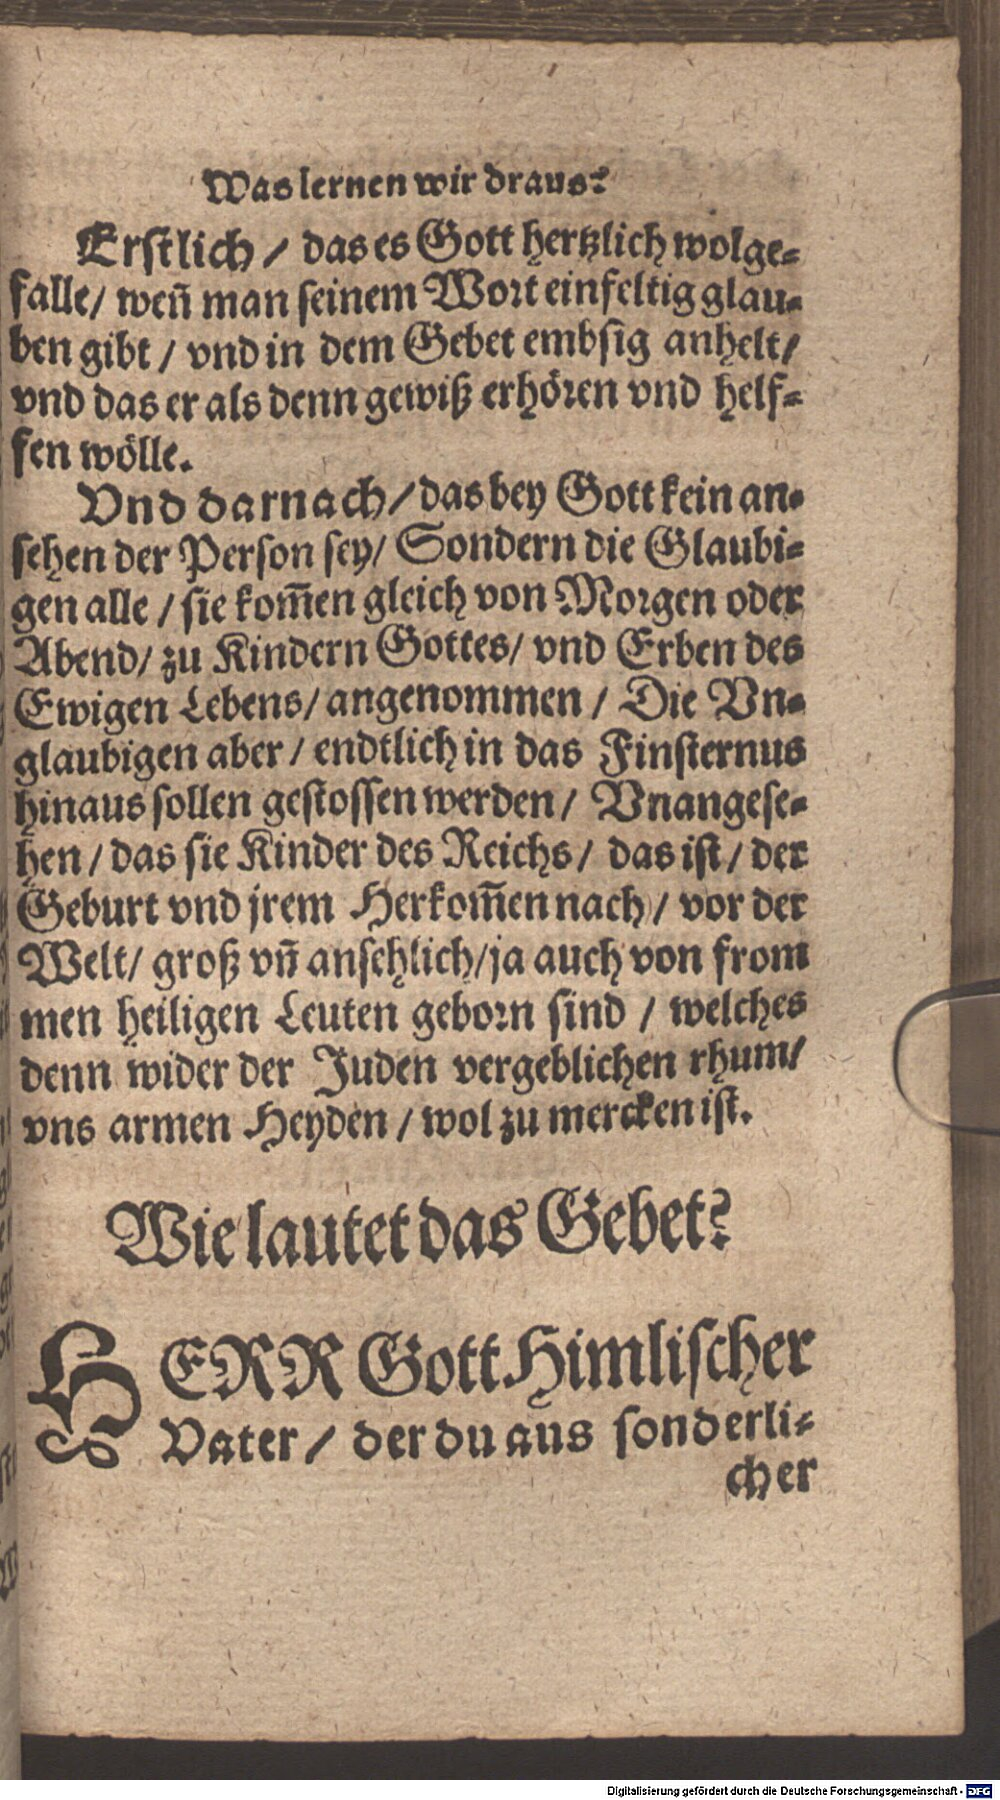 Was lernen wir draus?
Erſtlich / das es Gott hertzlich wolge⸗
falle/ weñ man ſeinem Wort einfeltig glau⸗
ben gibt / vnd in dem Gebet embſig anhelt/
vnd das er als denn gewiß erhören vnd helf⸗
fen wölle.
Vnd darnach / das bey Gott kein an⸗
ſehen der Perſon ſey/ Sondern die Glaubi⸗
gen alle / ſie kom̃en gleich von Morgen oder
Abend/ zu Kindern Gottes/ vnd Erben des
Ewigen Lebens/ angenommen / Die Vn⸗
glaubigen aber / endtlich in das Finſternus
hinaus ſollen geſtoſſen werden / Vnangeſe⸗
hen / das ſie Kinder des Reichs / das iſt / der
Geburt vnd jrem Herkom̃en nach / vor der
Welt/ groß vñ anſehlich/ ja auch von from
men heiligen Leuten geborn ſind / welches
denn wider der Juden vergeblichen rhum/
vns armen Heyden / wol zu mercken iſt.
Wie lautet das Gebet?
HERR Gott Himliſcher
Vater / der du aus ſonderli⸗
cher
Digitalisierung gefördert durch die Deutsche Forschungsgemeinschaft - DFG